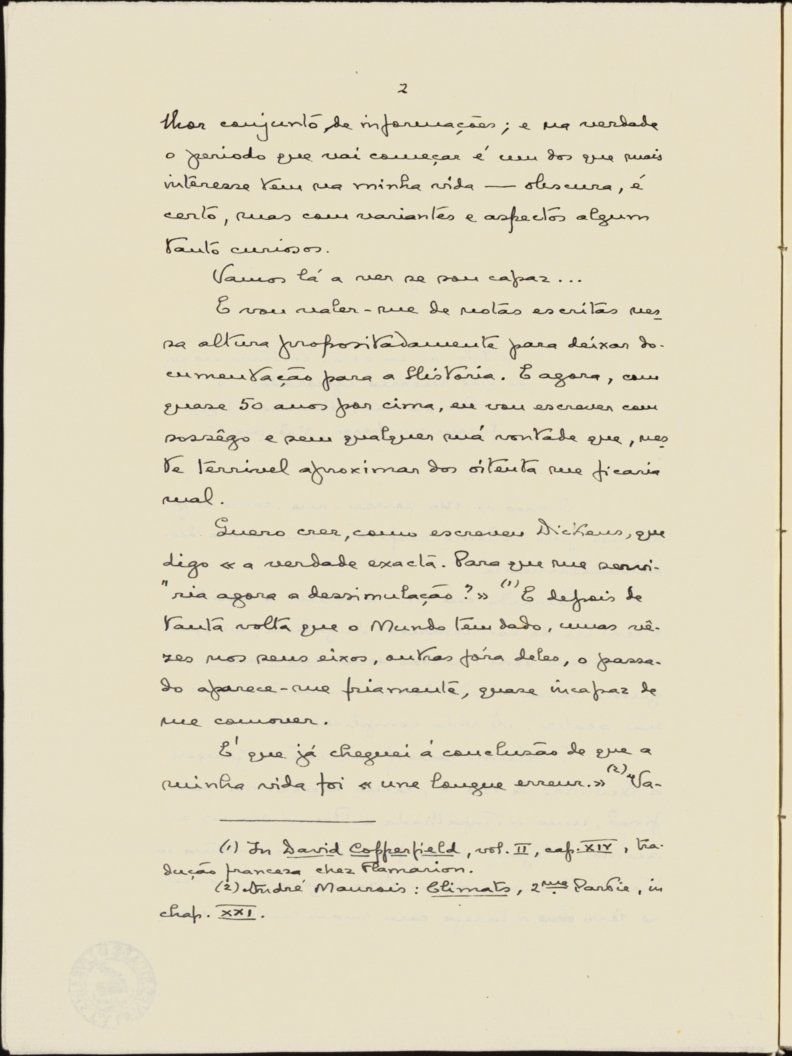 2
lhor conjunto, de informações; e na verdade
o periodo que vai começar é um dos que mais
interesse tem na minha vida — obscura, é
certo, mas com variantes e aspectos algum
tanto curiosos.
Vamos lá a ver se sou capaz...
E vou valer-me de notas escritas nes-
sa altura propositadamente para deixar do-
cumentação para a História. E agora, com
quase 50 anos por cima, eu vou escrever com
sossêgo e sem qualquer má vontade que, nes-
te terrivel aproximar dos oitenta me ficaria
mal.
Quero crer, como escreveu Dickens, que
digo « a verdade exacta. Para que me servi-
"ria agora a dessimulação?» (1) E depois de
tanta volta que o Mundo tem dado, umas vê-
zes nos seus eixos, outras fóra deles, o passa-
do aparece-me friamente, quase incapaz de
me comover.
E' que já cheguei á conclusão de que a
minha vida foi « une longue erreur.» (2) Va-
(1) In David Copperfield, vol. II, cap. XIV, tra-
dução francesa chez Flamarion.
(2) André Maurois: Climats, 2me Partie, in
chap. XXI.